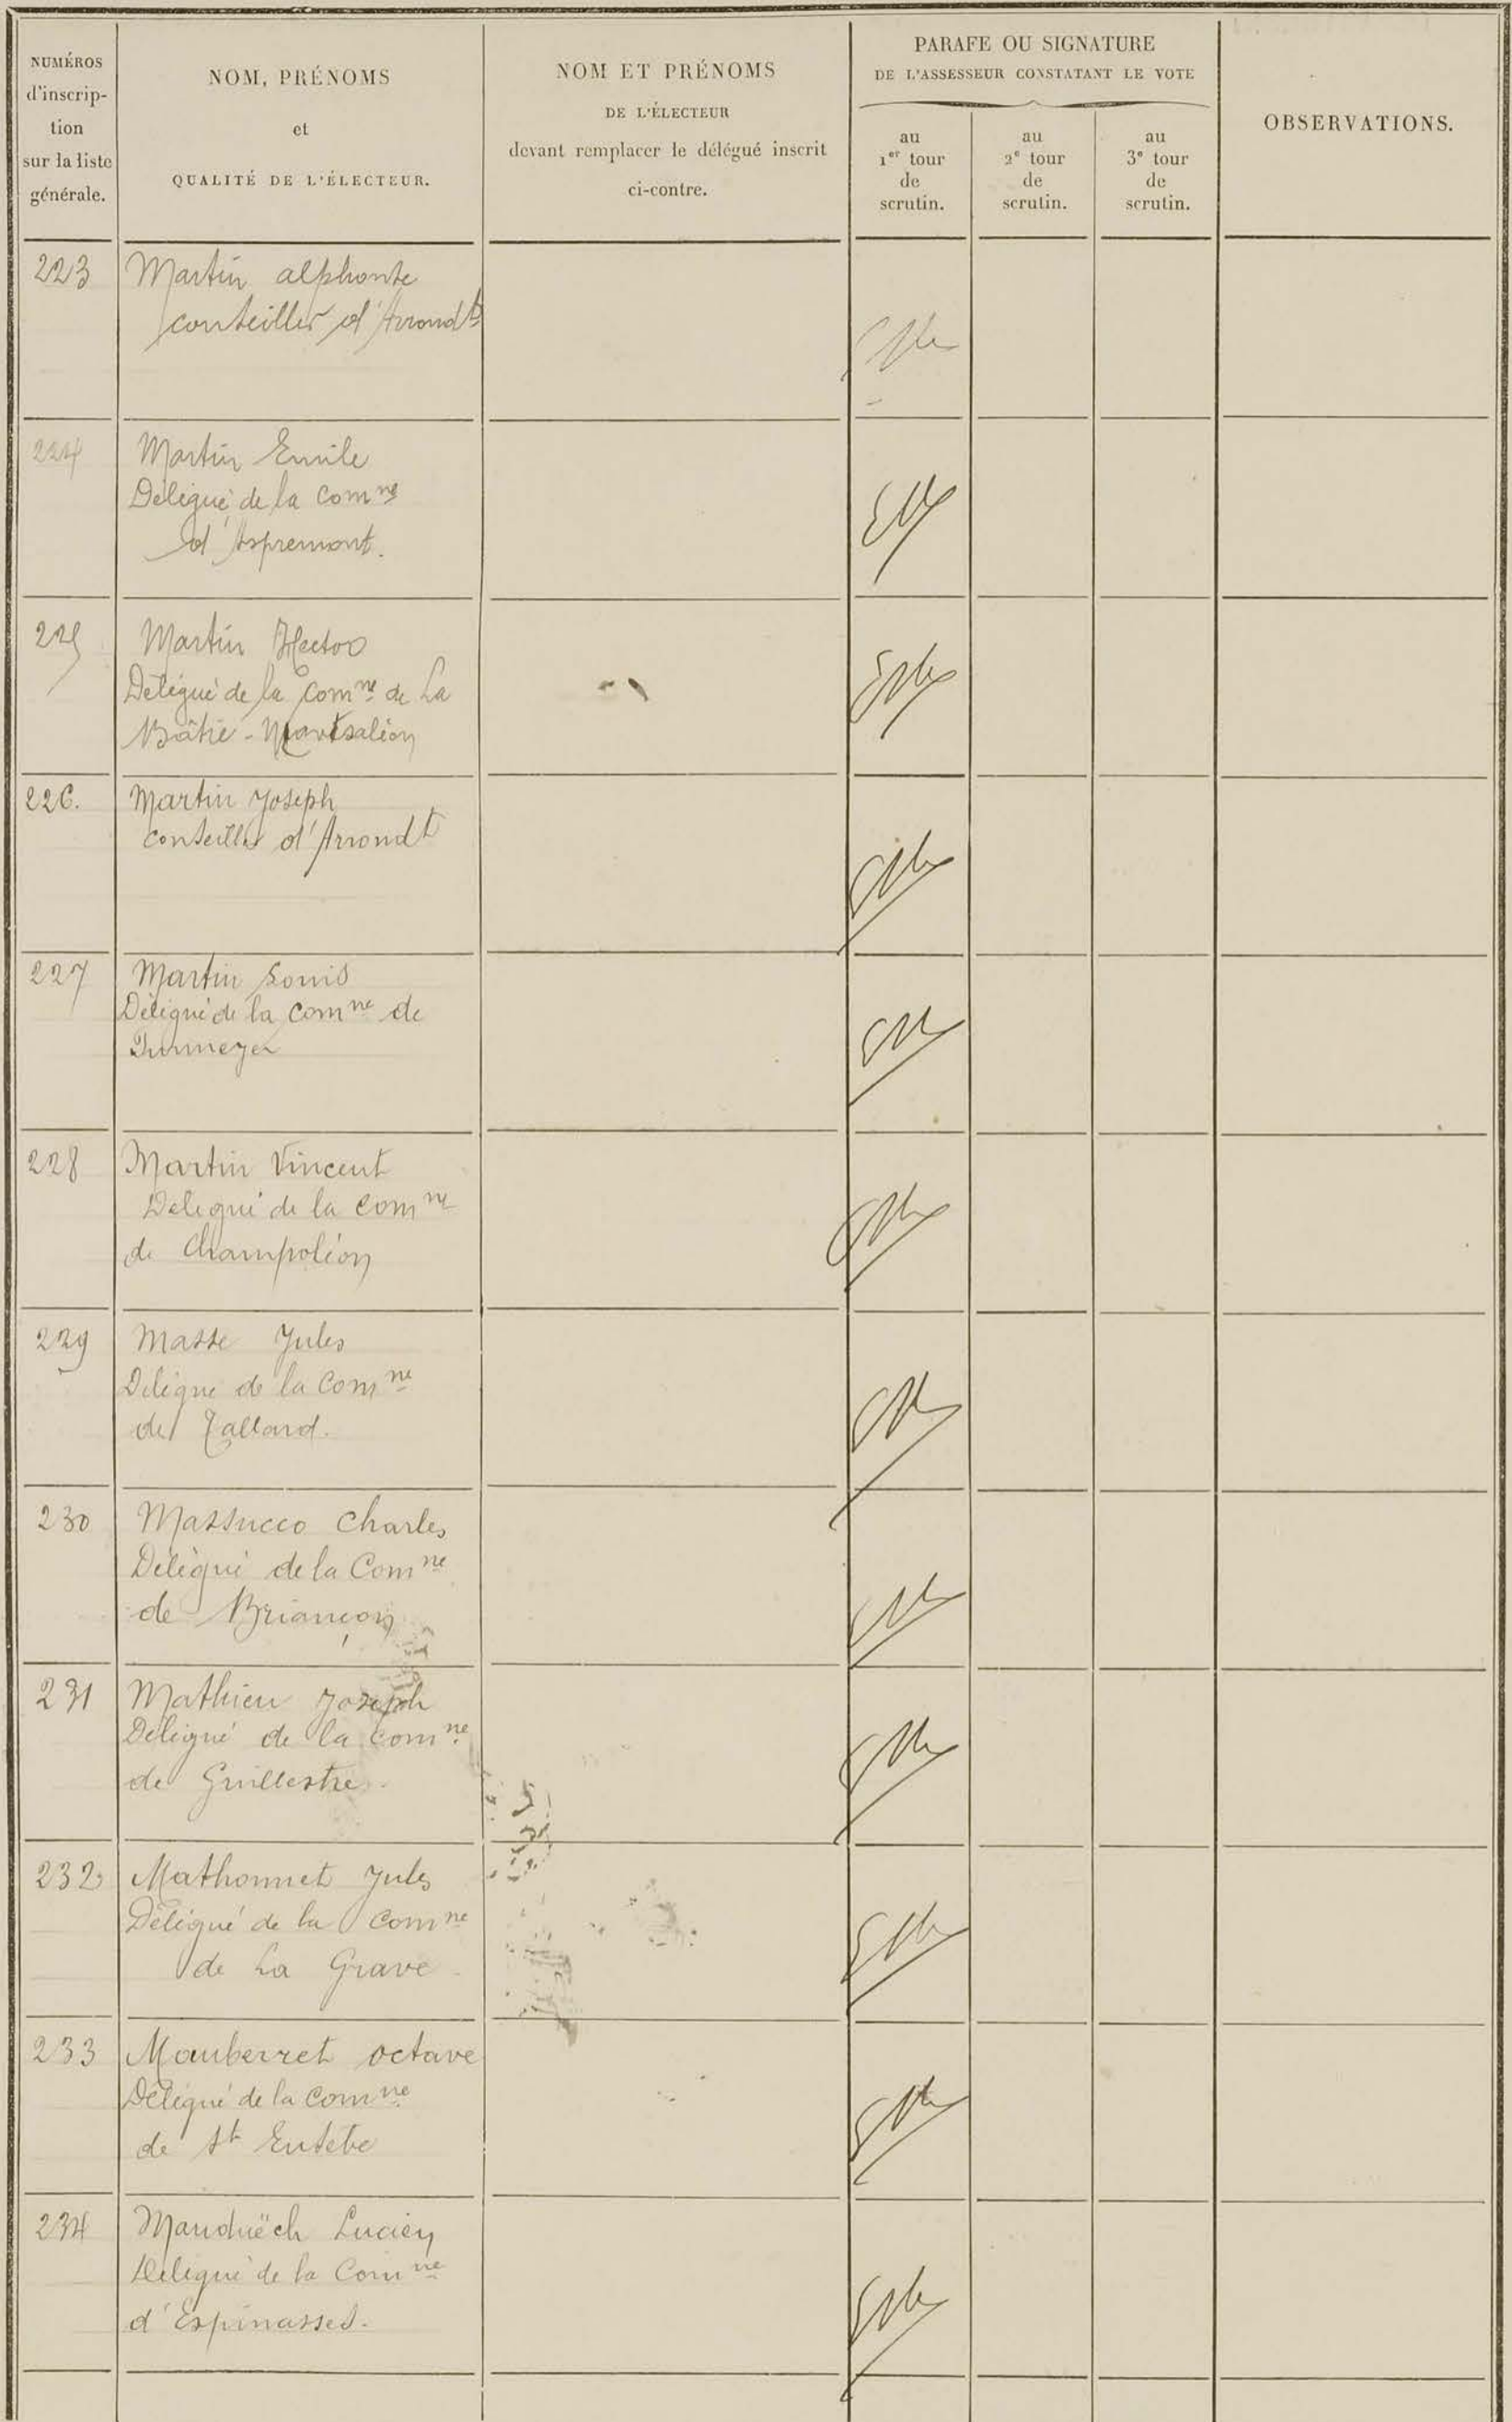 NUMÉROS
d'inscrip-
tion
sur la liste
générale.
NOM, PRÉNOMS
et
QUALITÉ DE L'ÉLECTEUR.
NOM ET PRÉNOMS
DE L'ÉLECTEUR
devant remplacer le délégué inscrit
ci-contre.
PARAFE OU SIGNATURE
DE L'ASSESSEUR CONSTATANT LE VOTE
au
1er tour
de
scrutin.
au
2e tour
de
scrutin.
au
3e tour
de
scrutin.
OBSERVATIONS.
223 Martin alphonse
conseiller d'Arrondt
224 Martin Emile
Délégué de la Comne
d'Aspremont.
225 Martin Hector
Délégué de la Comne de La
Bâtie-Montsaléon
226. Martin Joseph
Conseiller d'Arrondt
227 Martin Louis
Délégué de la Comne de
228 Martin Vincent
Délégué de la Comne
de Champoléon
229 Masse Jules
Délégué de la Comne
de Tallard.
230 Massucco Charles
Délégué de la Comne
de Briançon
231 Mathieu Joseph
Délégué de la Comne
de Guillestre.
232 Mathonnet Jules
Délégué de la Comne
de La Grave
233 Mauberret octave
Délégué de la Comne
de St Eusèbe
234 Manduëch Lucien
Délégué de la Comne
d'Espinasses.